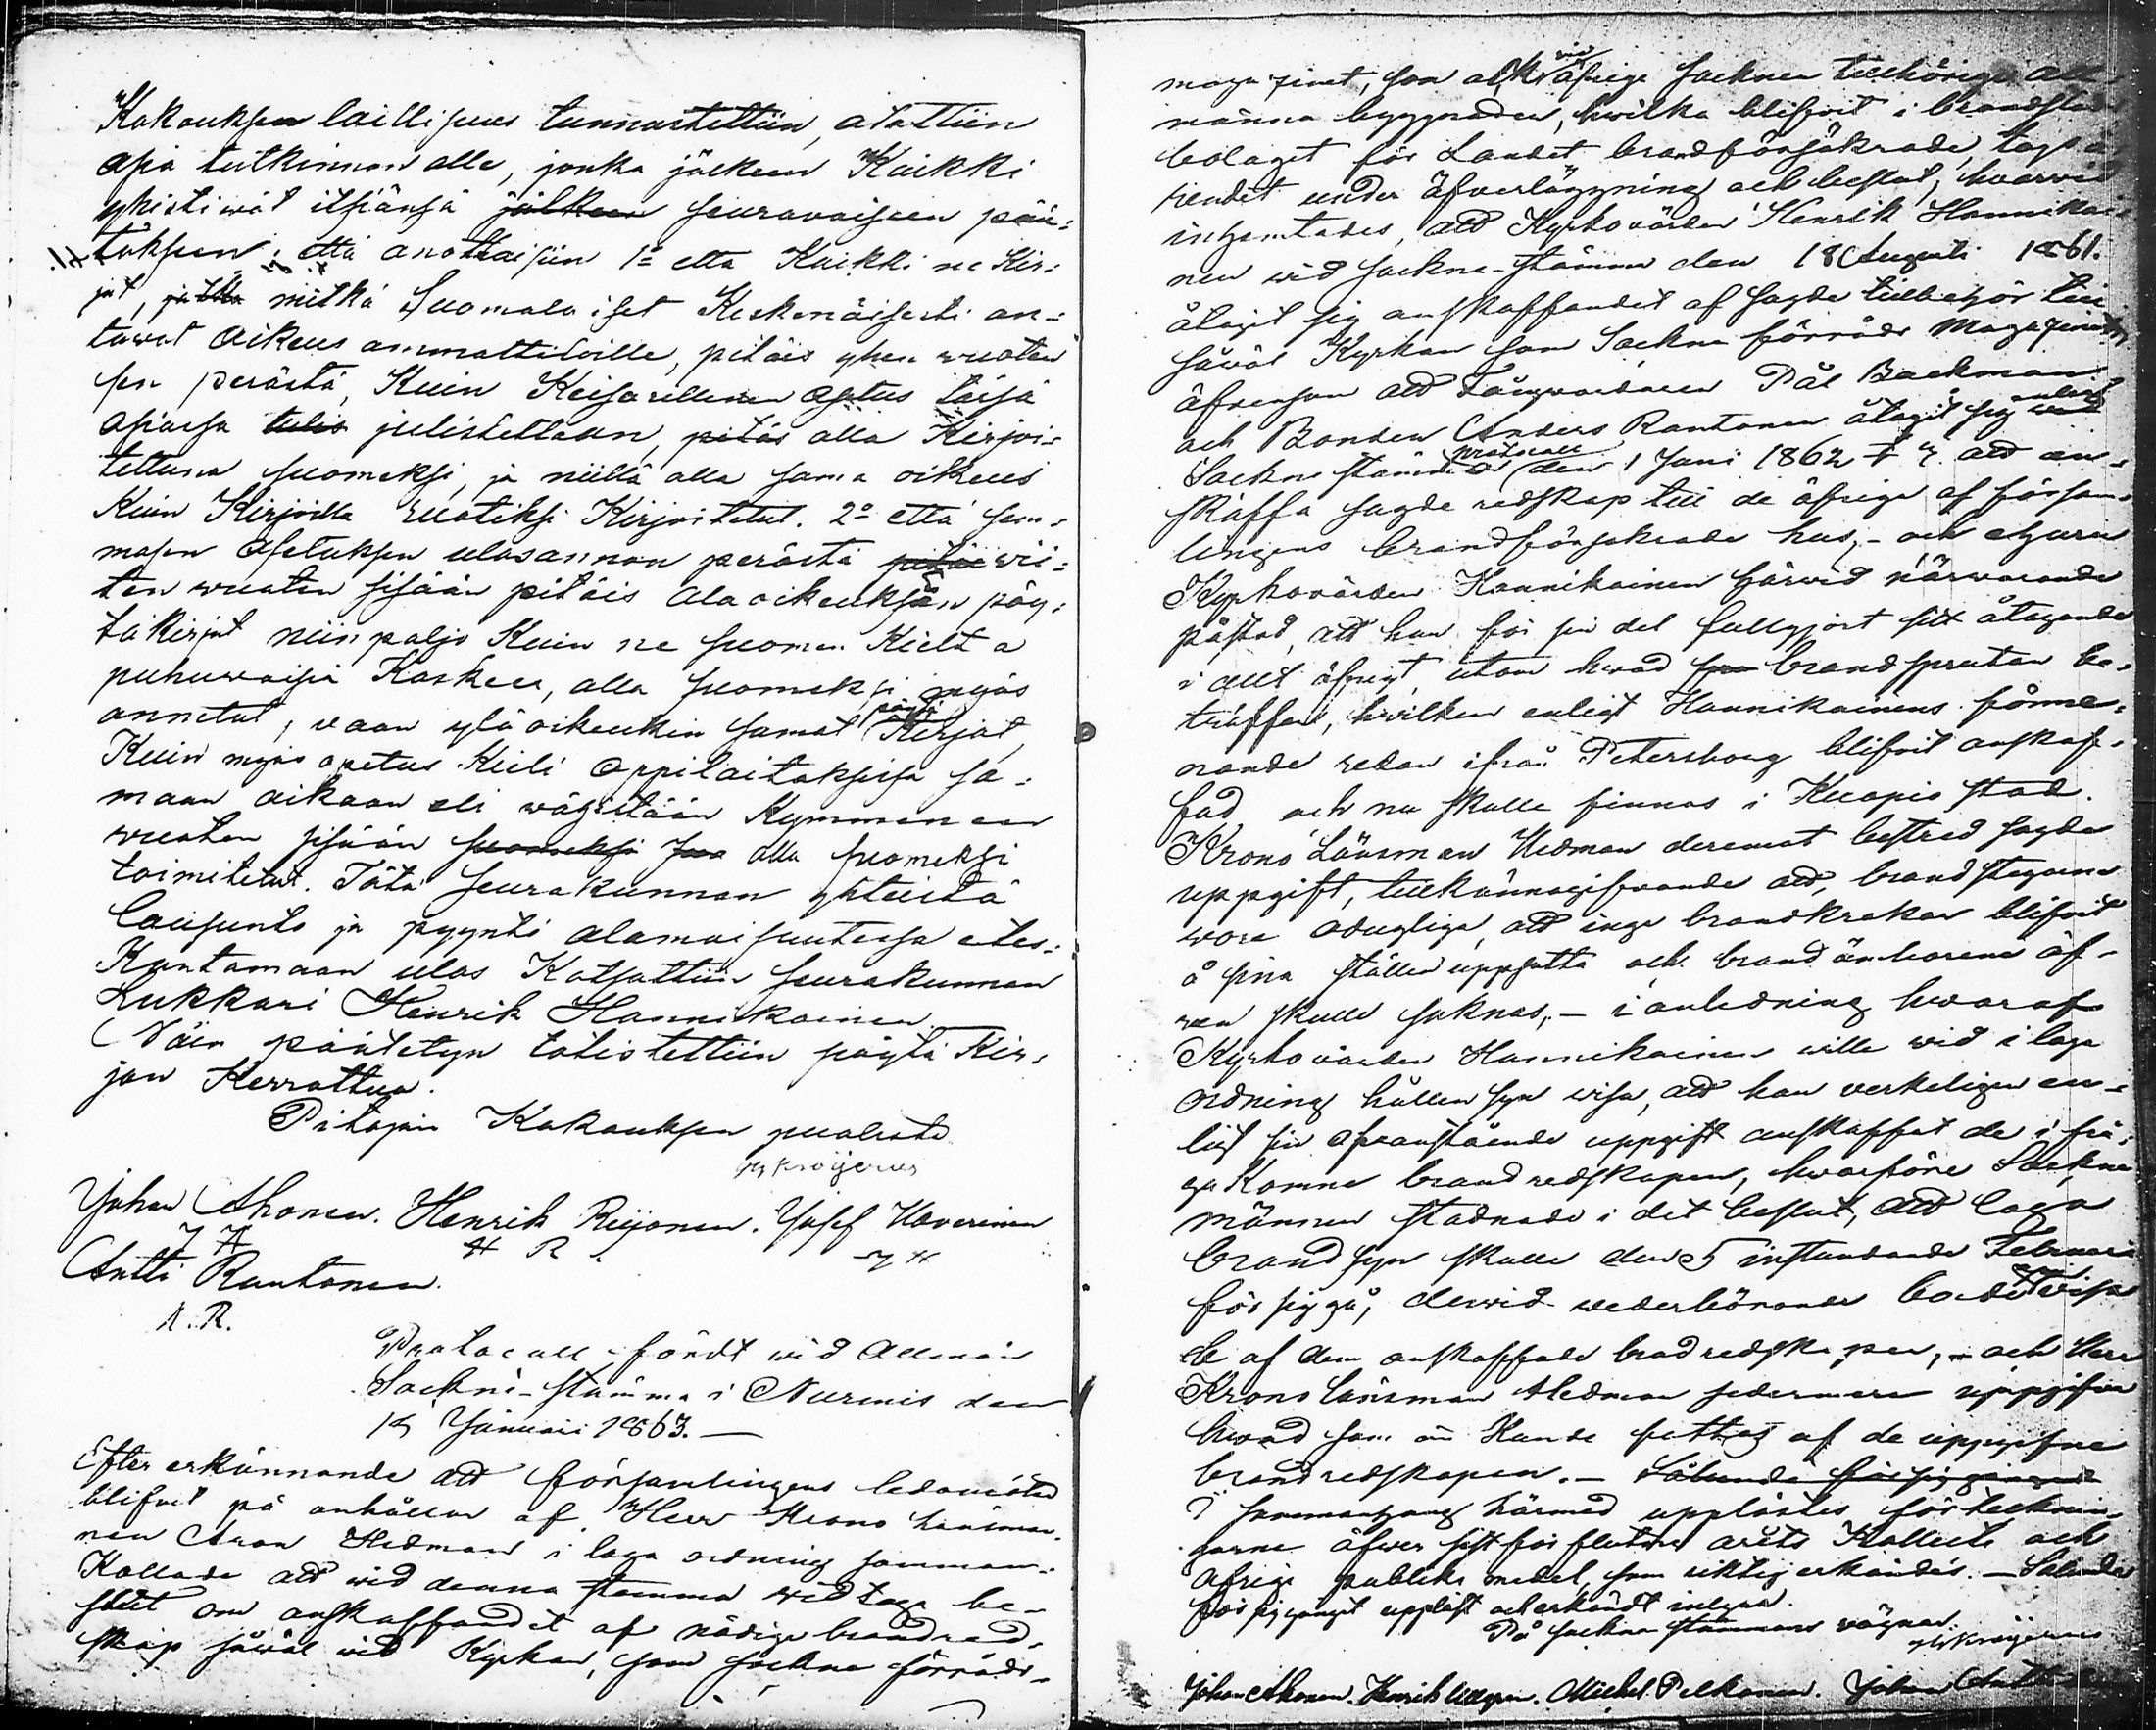 Kokouksen laillisuus tunnustettiin, otettiin
asia tutkinnon alle, jonka jälkeen Kaikki
yhistiwät itsiänsä jälkeen seuraavaiseen pää-
töksen: että anottaisiin 1º että Kaikki ne Kir-
jat, jotka mitkä Suomalaiset Keskenäisesti an-
tawat oikeus ammattiloille, pitäis yhen wuoten
sen perästä, Kuin Keisarillinen Asetus täsä
asiassa tulis julistettaan, pitäs olla Kirjoi-
tettuna suomeksi, ja niillä olla sama oikeus
Kuin Kirjoilla ruotiksi Kirjoitetut. 2º että sam-
masen Asetuksen ulosannon perästä pitäis wii-
ten wuoten sisään pitäis ala oikeuksen pöy-
täkirjat niin paljo Kuin ne suomen Kieltä
puhuwaisia Koskee, olla suomeksi myös
annetut, waan ylä oikeukin samat pöytä Kirjat,
Kuin myös opetus Kieli oppilaitoksisa sa-
maan aikaan eli wägistään Kymmenen
wuoten sisään suomeksi olla suomeksi
toimitetut. Tätä seurakunnan yhteistä
lausunto ja pyyntö alamaisuutessa etes-
Kantamaan ulos Katsottiin seurakunnan
Lukkari Henrik Hannikainen.
Näin päätetyn totistettiin pöytä Kir-
jan Kerrottua.
Pitäjän Kokouksen puolesta
Johan Ahonen. Henrik Reijonen. Josef Uverinen
J A H R J U
Antti Rantonen.
A. R.
Protocoll fördt wid Allmän
Sockne-stämma i Nurmis den
18 Januari 1863.
Efter erkännande att församlingens ledamöter
blifvit på anhållan af Herr Krono länsman-
nen Aron Hedman i laga ordning samman-
Kallade att wid denna stamma widtaga be-
slut om anskaffandet af nödiga brandred-
skap såwäl wid Kyrkan, som sockne förråds-
magazinet, som ock wid öfrige Socknen tillhörige all-
männa byggnader, hwilka blifvit i brandstods
bolaget för Landet brandförsäkrade, togs ä-
rendet under öfverläggning och beslut, hvarvid
inhemtades, att Kyrkovärden Henrik Hannikai-
nen wid sockne-stämma den 18 Augusti 1861.
åtagit sig anskaffandet af sagde tillbehör till
såwäl Kyrkan som Sockne förråds magazinet,
äfvensom att Torgvardaren Pål Backman
och Bonden Anders Rantanen åtagit sig enligt
Sockne stämma protocoll den 1 Juni 1862 att an-
skaffa sagde redskap till de öfriga af försam-
lingens brandförsäkrade hus, - och ehuru
Kyrkovärden Hannikainen härwid närwarande
påstod, att han för sin del fullgjort sitt åtagande
i allt öfrigt, utom hwad brandsprutan be-
träffar, hwilken enligt Hannikainens förme-
nande redan ifrån Petersborg blifvit anskaf-
fad och nu skulle finnas i Kuopio stad.
Krono Länsman Hedman deremot bestred sagde
uppgift, tillkännagifvande att, brandstegarne
wore odugliga, att inga brandkrokar blifvit
å sina ställen uppsatta och brandämbaren äf-
ven skulle saknas, - i anledning hwaraf
Kyrkovärden Hannikainen wille wid i laga
ordning hållen syn wisa, att han verkeligen en-
ligt sin ofvanstående uppgift anskaffat de i frå-
ga Komne brandredskapen, hwarföre Sockne
männen stadnade i det beslut, att laga
brandsyn skulle den 5 instundande Februari
för sig gå, derwid wederbörande borde wisa
de af dem anskaffade brandredskapen, - och Herr
Krono länsman Hedman sedermera uppgifva
hwad som än Kunde fattas af de uppgifne
brandredskapen. - Sålunda försiggånget
I sammanhang härmed upplästes förteckning-
garne öfwer sist förflutne årets Kollect och
öfrige publike medel, som riktig erkändes. - Sålunda
för sig gånget uppläst och erkändt intygas.
På Sockne stämmans vägnar.
Johan Ahonen. Henrik Michel Pelkonen. Johan